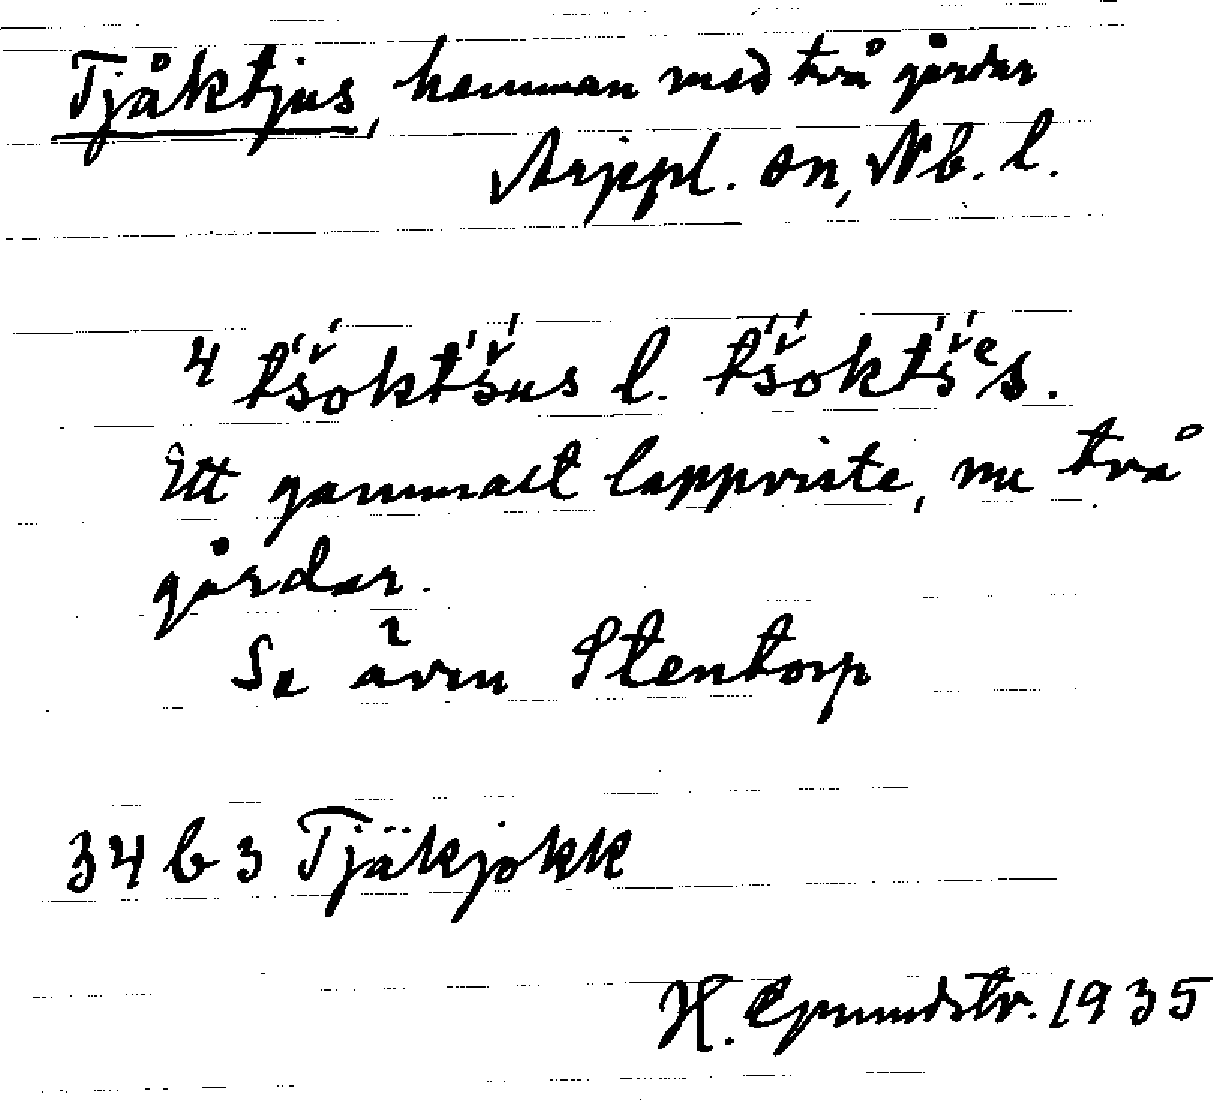 Tjåktjus, hemman med två gårdar
Arjepl. sn, Nb. l.
4 t́š́okt́š́us l. t́š́okt́š́ᵉs.
Ett gammalt lappviste, nu två
gårdar.
Se även Stentorp
34 b 3 Tjäkjokk
H. Grundstr. 1935